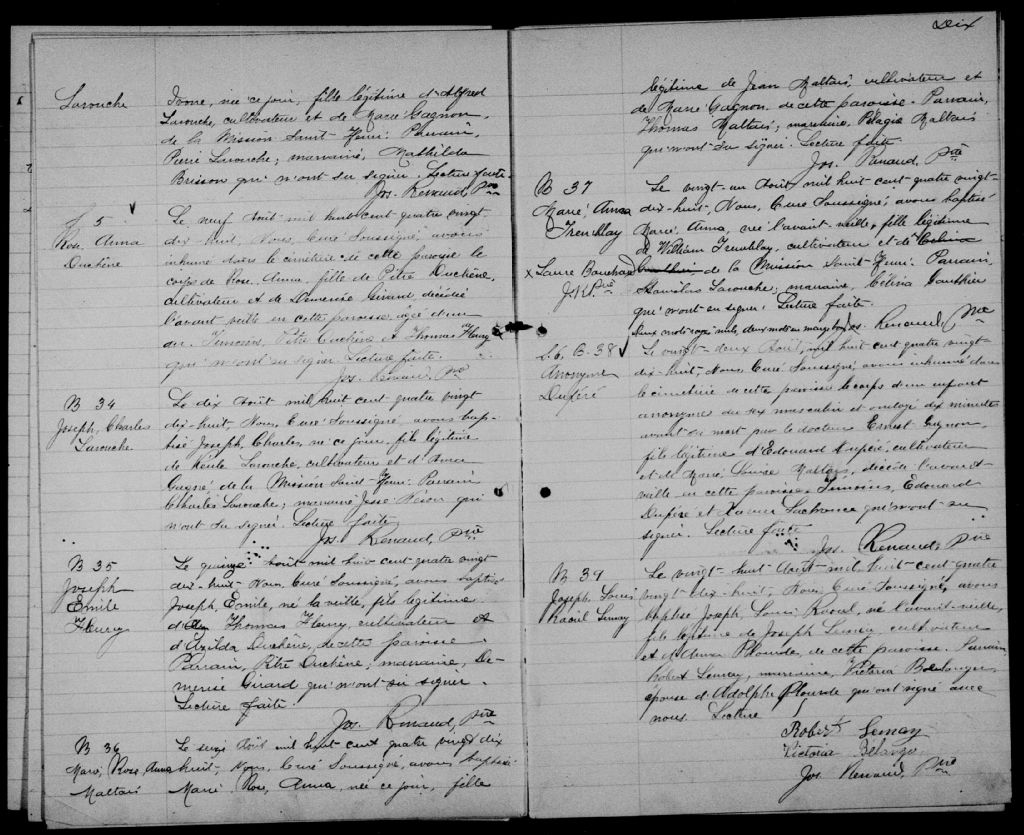 Larouche
Ivone, née ce jour, fille légitime d'Alfred
Larouche, cultivateur et de Marie Gagnon,
de la Mission Saint-Henri. Parrain,
Pierre Larouche; marraine, Mathilda
Brisson qui n'ont su signer. Lecture faite.
Jos. Renaud, Ptre
S 5
Rose Anna
Duchêne
Le neuf Août mil huit cent quatre vingt
dix-huit, Nous, Curé Soussigné, avons
inhumé dans le cimetière de cette paroisse le
corps de Rose Anna, fille de Pitre Duchêne,
cultivateur et de Demerise Girard, décédée
l'avant veille en cette paroisse, agée d'un
an. Témoins, Pitre Duchêne et Thomas Fleury
qui n'ont su signer. Lecture faite.
Jos. Renaud, Ptre
B 34
Joseph, Charles
Larouche
Le dix Août mil huit cent quatre vingt
dix-huit, Nous, Curé Soussigné, avons bap-
tisé Joseph, Charles, né ce jour, fils légitime
de Larouche, cultivateur et d'Anna
Gagné de la Mission Saint-Henri. Parrain
Charles Larouche; marraine qui
n'ont su signer. Lecture faite
Jos. Renaud, Ptre
B 35
Joseph
Emile
Fleury
Le quinze Août mil huit cent quatre vingt
dix-huit, Nous, Curé Soussigné, avons baptisé
Joseph, Emile, né la veille, fils légitime
de Thomas Fleury, cultivateur et
d'Exilda Duchêne, de cette paroisse.
Parrain, Pitre Duchêne, marraine, De-
merise Girard qui n'ont su signer.
Lecture faite.
Jos. Renaud, Ptre
B 36
Marie, Rose, Anna
Maltais
Le seize Août mil huit cent quatre vingt dix
huit, Nous, Curé Soussigné, avons baptisé
Marie Rose, Anna, née ce jour, fille
Dix
légitime de Jean Maltais, cultivateur et
de Marie Gagnon, de cette paroisse. Parrain,
Thomas Maltais; marraine, Pélagie Maltais
qui n'ont su signer. Lecture faite.
Jos. Renaud, Ptre
B 37
Marie, Anna
Tremblay
x Laure Bouchard
J. R. Ptre
Le vingt-un Août mil huit cent quatre vingt-
dix-huit, Nous, Curé Soussigné, avons baptisé
Marie, Anna, née l'avant-veille, fille légitime
de William Tremblay, cultivateur et de Celina
Gauthier de la Mission Saint-Henri. Parrain,
Stanislas Larouche; marraine, Célina Gauthier
qui n'ont su signer. Lecture faite.
Deux mots rayés nuls, deux mots en marge bons. Jos. Renaud, Ptre
S.6. B.38
Anonyme
Dupéré
Le vingt-deux Août, mil huit cent quatre vingt-
dix-huit, Nous, Curé Soussigné, avons inhumé dans
le cimetière de cette paroisse le corps d'un enfant
anonyme du sexe masculin et ondoyé dix minutes
avant sa mort par le docteur Ernest Gagnon,
fils légitime d'Edouard Dupéré, cultivateur
et de Marie Louise Maltais, décédé l'avant-
veille en cette paroisse. Témoins, Edouard
Dupéré et Xavier Lachance qui n'ont su
signer. Lecture faite
Jos. Renaud, Ptre
B 39
Joseph Louis
Raoul Lemay
Le vingt-huit Août mil huit cent quatre
vingt-dix-huit, Nous, Curé Soussigné, avons
baptisé Joseph, Louis Raoul, né l'avant-veille,
fils légitime de Joseph Lemay, cultivateur
et d'Anna Plourde, de cette paroisse. Parrain
Robert Lemay, marraine, Victoria Boulanger,
épouse d'Adolphe Plourde qui ont signé avec
nous. Lecture
Robert Lemay
Victoria Bélanger
Jos. Renaud, Ptre